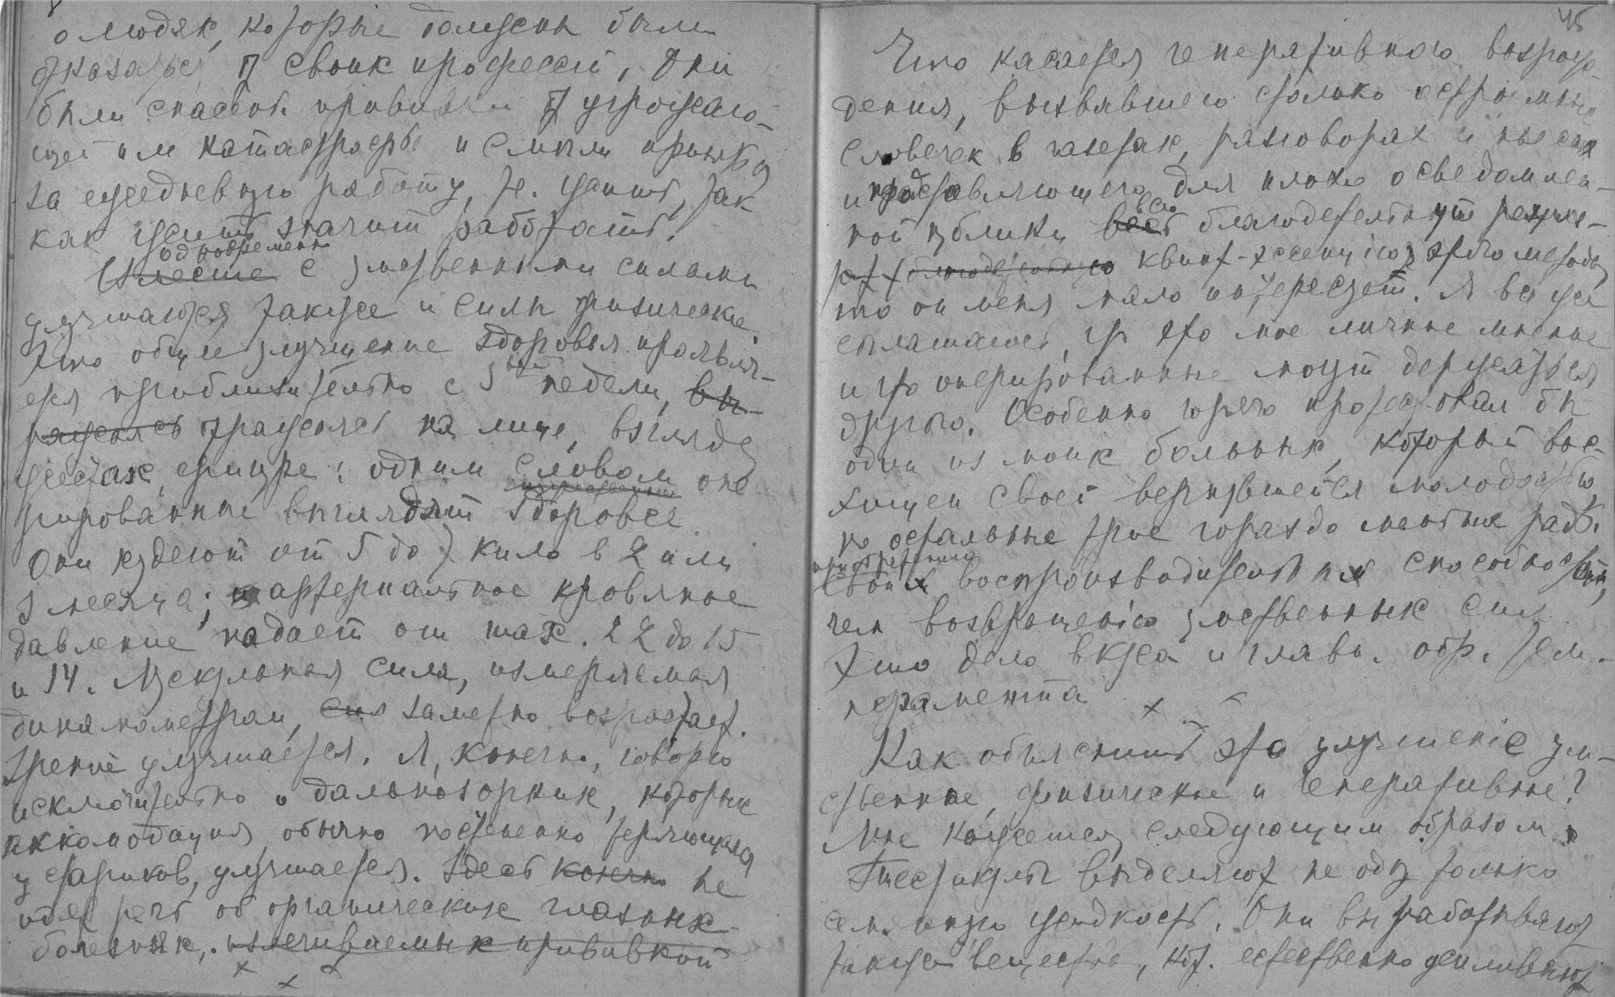 о людях, которые должны были
отказаться от своих профессий, они
были спасены прививкой от угрожаю-
щей им катастрофы и снова
за ежедневную работу, т.
как жить значит работать!
одновременно
Вместе с умственными силами
улучшаются также и силы физические
Это общее улучшение здоровья проявля-
ется приблизительно с 3 недели, вы-
ражаясь отражаясь на лице, взгляде
жестах, фигуре: одним словом опе-
рированные выглядят здоровее
Они худеют от 5 до 7 кило в 2 или
3 месяца; артериальное кровяное
давление падает от max. 22 до 15
и 14. Мускульная сила, измеряемая
динамометром, сил заметно возрастает.
Зрение улучшается. Я, конечно, говорю
исключительно о дальнозорких, которых
аккомодация, обычно постепенно теряющаяся
у стариков, улучшается. Здесь конечно не
идет речь об органических глазных
болезнях, излечиваемых прививкой
× × ×
45
Что касается генеративного возрож-
дения, вызвавшего столько остроумных
словечек в газетах, разговорах и пьесах
и представляющего для плохо осведомлен-
всю
ной публики весь благодетельный резуль-
тат квинт-эссенцию этого метода,
то он меня мало интересует. Я вполне
соглашаюсь, что это мое личное мнение
и что оперированные могут держаться
другого. Особенно горячо протестовал бы
один из моих больных, который вос-
хищен своей вернувшейся молодостью,
но остальные трое гораздо менее рады
приобретению
своих воспроизводительных способностей,
чем возвращению умственных сил.
Это дело вкуса и главн. обр. тем-
перамента
× ×
Как объяснить это улучшение ум-
ственное, физическое и генеративное?
Мне кажется, следующим образом.
Тестикулы выделяют не одну только
семенную жидкость. Они вырабатывают
также вещество, кот. естественно усиливают